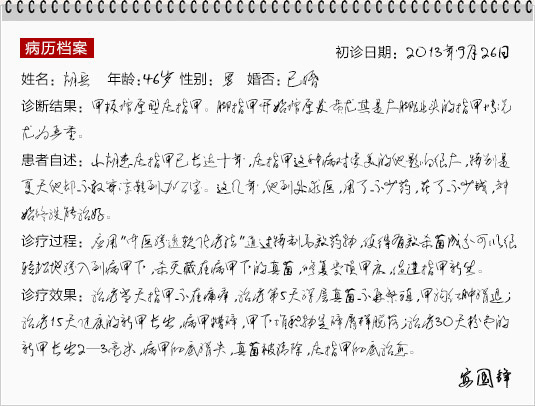 病历档案
初诊日期：2013年9月26日
姓名：胡兵 年龄：46岁 性别：男 婚否：已婚
诊断结果：甲板增厚型灰指甲。脚指甲开始增厚发布尤其是大脚趾头的指甲情况
尤为严重。
患者自述：小胡患灰指甲已长达十年，灰指甲这种病对爱美的他影响很大，特别是
夏天他却不敢穿凉鞋到办公室。这几年，他到处求医，用了不少药，花了不少钱，却
始终没能治好。
诊疗过程：应用“中医渗透软化疗法”通过特别高效药物，使得有效杀菌成分可以很
轻松地渗入到病甲下，杀灭藏在病甲下的真菌，修复受损甲床，促进指甲新生。
诊疗效果：治疗当天指甲不在瘙痒，治疗第5天深层真菌不再繁殖，甲沟红肿消退；
治疗15天健康的新甲长出，病甲糟碎，甲下堆积物呈碎屑样脱落；治疗30天粉色的
新甲长出2—3毫米，病甲彻底消失，真菌被清除，灰指甲彻底治愈。
安国锋